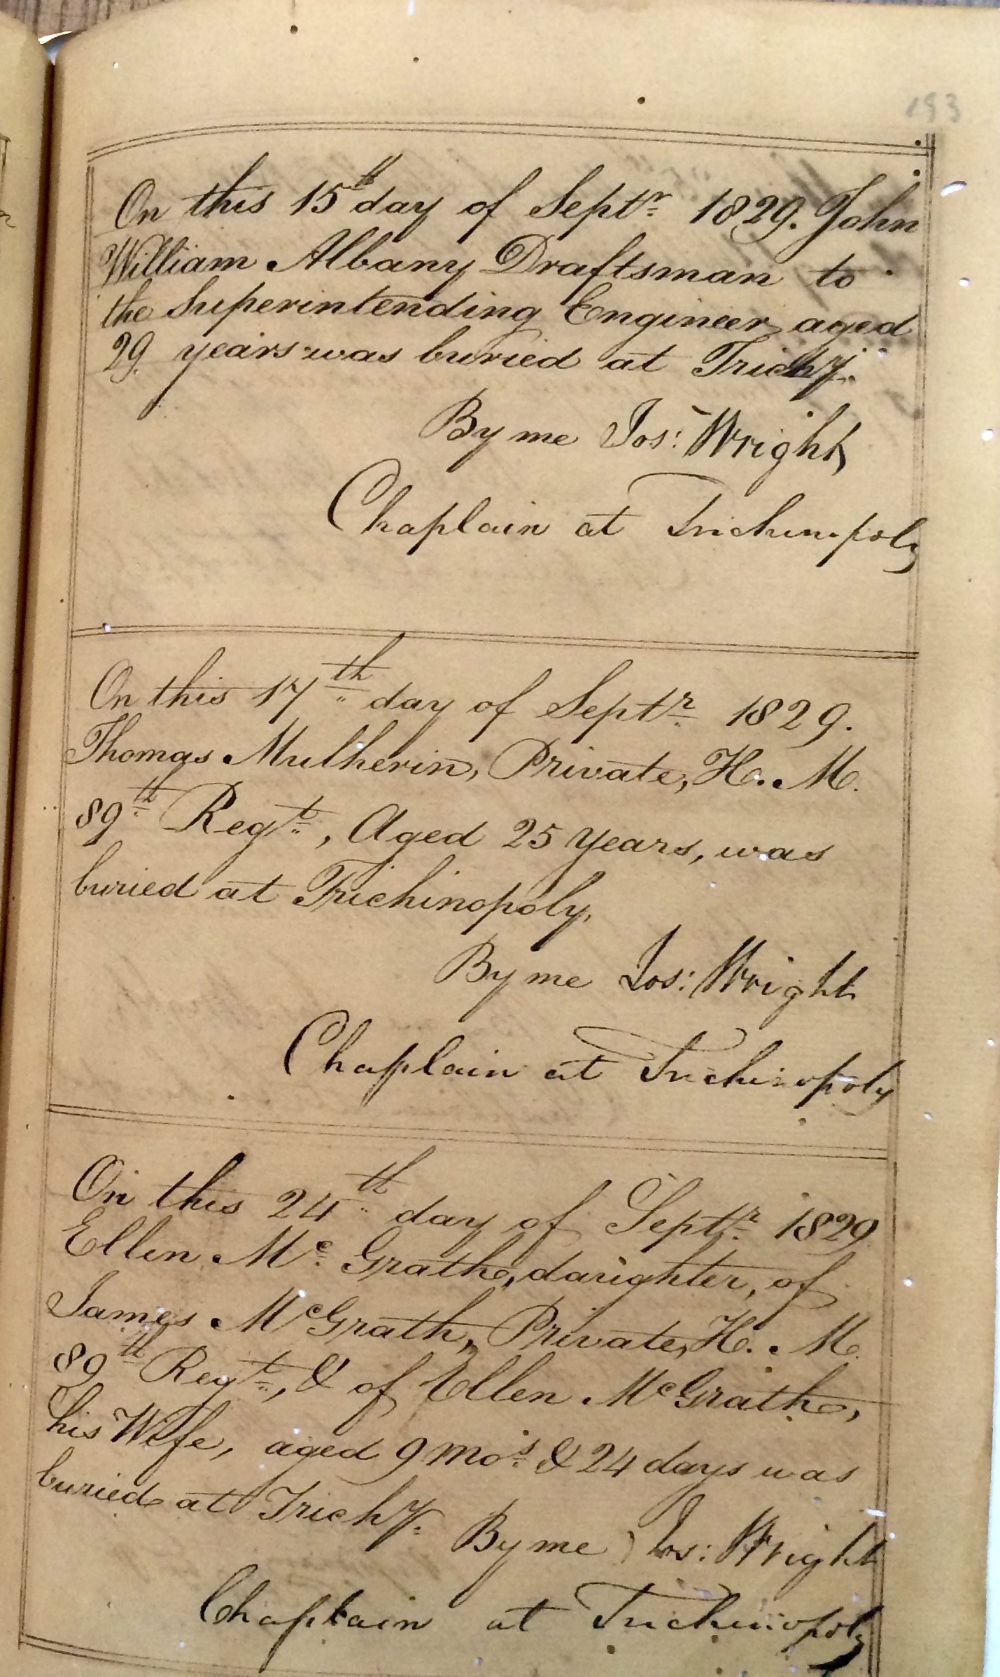 193
On this 15th day of Septr 1829. John
William Albany Draftsman to
the Superintending Engineer aged
29 years was buried at Trichy.
By me Jos: Wright
Chaplain at Trichinopoly
On this 17th day of Septr 1829.
Thomas Mulherin, Private, H. M.
89th Regt, Aged 25 years, was
buried at Trichinopoly,
By me Jos: Wright
Chaplain at Trichinopoly
On this 24th day of Septr 1829
Ellen Mc Grath, daughter, of
James McGrath, Private, H. M.
89th Regt, & of Ellen McGrath,
his Wife, aged 9 mos & 24 days was
buried at Trichy. By me Jos: Wright
Chaplain at Trichinopoly